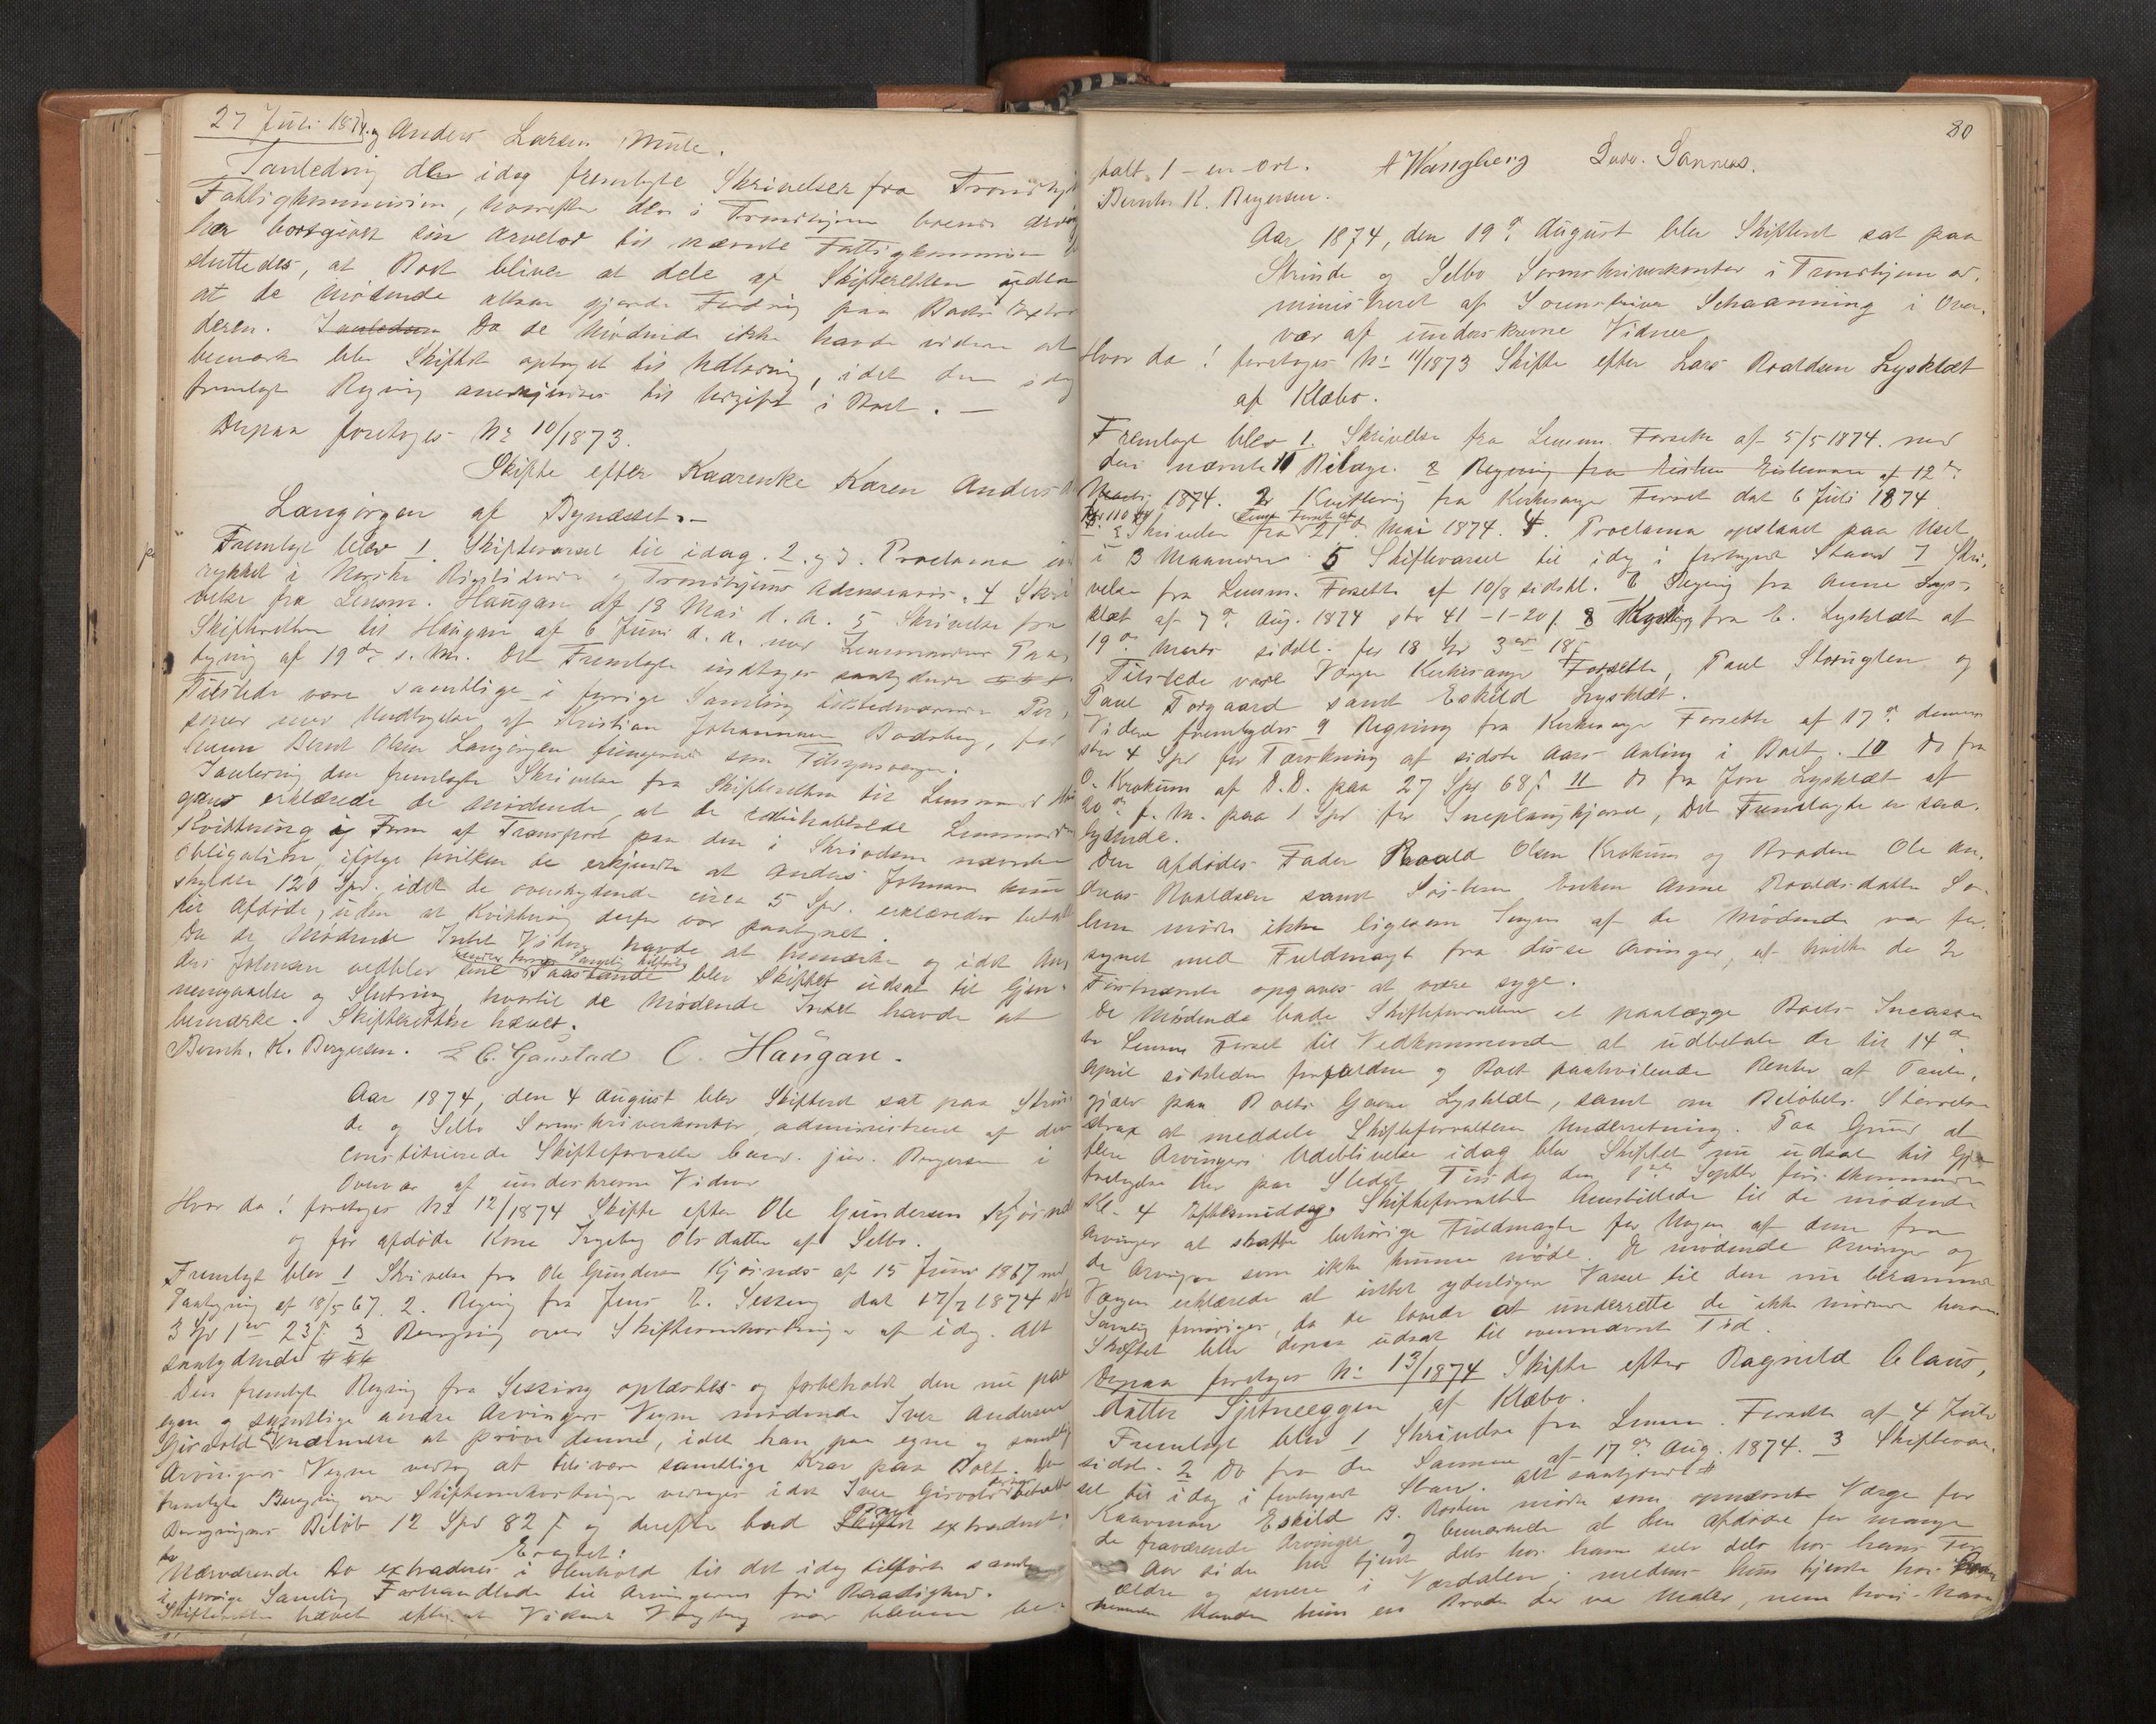 27 Juli 1874. og Anders Larsen Mule.
I Anledning den idag fremlagte Skrivelser fra Trondhj
Fattigkommission, hvorefter den i Trondhjem boende Arving
har bortgivet sin Arvelod til nævnte Fattigkommission
sluttedes, at Boet bliver at dele af Skifteretten uden
at de Mødende altsaa gjorde Fordring paa Boets Extra
deren. I Anledning Da de Mødende ikke havde videre at
bemærke blev Skiftet optaget til Udlodning, idet den idag
fremlagte Regning anerkjendtes til Udgift i Boet. —
Derpaa foretoges No 10/1873.
Skifte efter Kaarenke Karen Anders
Langørgen af Bynæsset. —
Fremlagt blev 1. Skiftevarsel til idag. 2. og 3. Proclama ind
rykket i Norske Rigstidende og Trondhjems Adresseavis. 4 Skri
velse fra Lensm. Haugan af 18 Mai d. A. 5 Skrivelse fra
Skifteretten til Haugan af 6 Juni d. A. med Lensmandens Paa
tegning af 19de s. M. Det Fremlagte indtages saalydende
Tilstede vare samtlige i forrige Samling tilstedeværende Per,
soner med Undtagelse af Kristian Johannesen Bodsberg, for
hvem Bernt Olsen Langørgen fungerede som Tilsynsværge.
I Anledning den fremlagte Skrivelse fra Skifteretten til Lensmand Hau
gan erklærede de Mødende, at de extraderede Lensmanden
Kvittering i Form af Transport paa den i Skrivelsen nævnte
Obligation, ifølge hvilken de erkjendte at Anders Johnsen kun
skyldte 120 Spd. idet de overskydende circa 5 Spd. erklæredes betalt
til Afdøde, uden at Kvittering derfor var paategnet.
Da de Mødende Intet Videre havde at bemærke og idet An
ders Johnsen vedblev sine Paastande blev Skiftet udsat til Gjen-
nemgaaelse og Slutning, hvortil de Mødende Intet havde at
bemærke. Skifteretten hævet.
Bernh. K. Bergersen. E C. Gaustad O. Haugan.
Aar 1874, den 4 August blev Skifteret sat paa Strin-
de og Selbo Sorenskriverkontor, administreret af den
constituerede Skifteforvalter Cand. jur. Bergersen i
Overvær af underskrevne Vidner
Hvor da! foretoges No 12/1874 Skifte efter Ole Gundersen Kjøsnæs
og før afdøde Kone Ingeborg Olsdatter af Selbo.
Fremlagt blev 1 Skrivelse fra Ole Gundersen Kjøsnæs af 15 Juni 1867 med
Paategning af 18/5 67. 2. Regning fra Jens E. Sesseng dat 17/7 1874 stor
3 Spd 1 ort 23 s. 3 Beregning over Skifteomkostninger af idag. Alt
saalydende
Den fremlagte Regning fra Sesseng oplæstes og forbeholdt den nu paa
egne og samtlige andre Arvingers Vegne mødende Iver Andersen
Girvold Medmælte at prøve denne, idet han paa egne og samtlige
Arvingers Vegne vedtog at tilsvare samtlige Krav paa Boet. Den
fremlagte Beregning over Skifteomkostninger vedtoges idet Iver Girvold betalte
Beregningens Beløb 12 Spd 82 s og derefter bad Skiftet Boet extraderet:
Eragtet:
Nærværende Bo extraderes i Henhold til det idag tilførte samt
i forrige Samling Forhandlede til Arvingernes fri Raadighed.
Skifteretten hævet efterat Vidnet Wangberg var bleven be
80
talt 1 - en - Ort. A Wangberg Ludv. Sannæs.
Bernh. K. Bergersen.
Aar 1874, den 19de August blev Skifteret sat paa
Strinde og Selbo Sorenskriverkontor i Trondhjem ad,
ministreret af Sorenskriver Schaanning i Over,
vær af underskrevne Vidner
Hvor da! foretoges No 11/1873 Skifte efter Lars Roaldsen Lysklæt
af Klæbo.
Fremlagt blev 1. Skrivelse fra Lensm. Forseth af 5/5 1874. med
den nævnte 11 Bilage. 2 Regning fra Enken af 12te
Marts 1874. 2 Kvittering fra Kirkesanger Forset dat 6 Juli 1874
3 Skrivelse fra Lensm Forset af 21de Mai 1874. 4. Proclama opslaaet paa Huset
i 3 Maaneder. 5 Skiftevarsel til idag i forkyndt Stand 7 Skri,
velse fra Lensm. Forseth af 10/8 sidstl. 6 Regning fra Anne Lys-
klæt af 7de Aug. 1874 stor 41-1-20 s. 8 Regning fra E. Lysklæt af
19de Marts sidstl. for 18 Spd 3 ort 18 s.
Tilstede vare Værgen Kirkesanger Forseth, Paul Storuglen og
Paul Torgaard samt Eskild Lysklæt.
Videre fremlagdes 9 Regning fra Kirkesanger Forseth af 17de dennes
stor 4 Spd for Tærskning af sidste Aars Avling i Boet. 10 Do fra
O. Krokum af D.D. paa 27 Spd 68 s. 11 Do fra Jon Lysklæt af
20de f. M. paa 1 Spd for Sneplougkjørsel, Det Fremlagte er saa-
lydende.
Den afdødes Fader Roald Olsen Krokum og Broderen Ole An,
dreas Roaldsen samt Søsteren Enken Anne Roaldsdatter So-
lem mødte ikke ligesom Ingen af de Mødende var for,
synet med Fuldmagt fra disse Arvinger, af hvilke de 2
Førstnævnte opgaves at være syge.
De Mødende bade Skifteforvalteren at paalægge Boets Incassa
tor Lensm Forset til Vedkommende at udbetale de til 14de
April sidstleden forfaldne og Boet paahvilende Renter af Pante,
gjæld paa Boets Gaard Lysklæt, samt om Beløbets Størrelse
strax at meddele Skifteforvalteren Underretning. Paa Grund af
flere Arvingers Udeblivelse idag blev Skiftet nu udsat til Gjen
foretagelse her paa Stedet Tirsdag den 1ste Septbr førstkommende
Kl. 4 Eftermiddag. Skifteforvalteren henstillede til de mødende
Arvinger at skaffe behørige Fuldmagter for Nogen af dem fra
de Arvinger som ikke kunne møde. De mødende Arvinger og
Værgen erklærede at intet yderligere Varsel til den nu berammede
Samling fornødiges, da de lovede at underrette de ikke mødende herom.
Skiftet blev derpaa udsat til ovennævnt Tid.
Derpaa foretoges No 13/1874 Skifte efter Ragnild Claus,
datter Sjetneeggen af Klæbo.
Fremlagt blev 1 Skrivelse fra Lensm. Forseth af 4 Juli
sidstl. 2 Do fra den Samme af 17de Aug. 1874. 3 Skiftevar,
sel til idag i forkyndt Stand. Alt saalydende
Gaardmand Eskild B. Rosten mødte som opnævnte Værge for
de fraværende Arvinger og bemærkede at den afdøde for mange
Aar siden har tjent dels hos ham selv dels hos hans For
ældre og senere i Værdalen; medens hun tjente hos
havde hun en Broder der var Maler, men hvis Navn